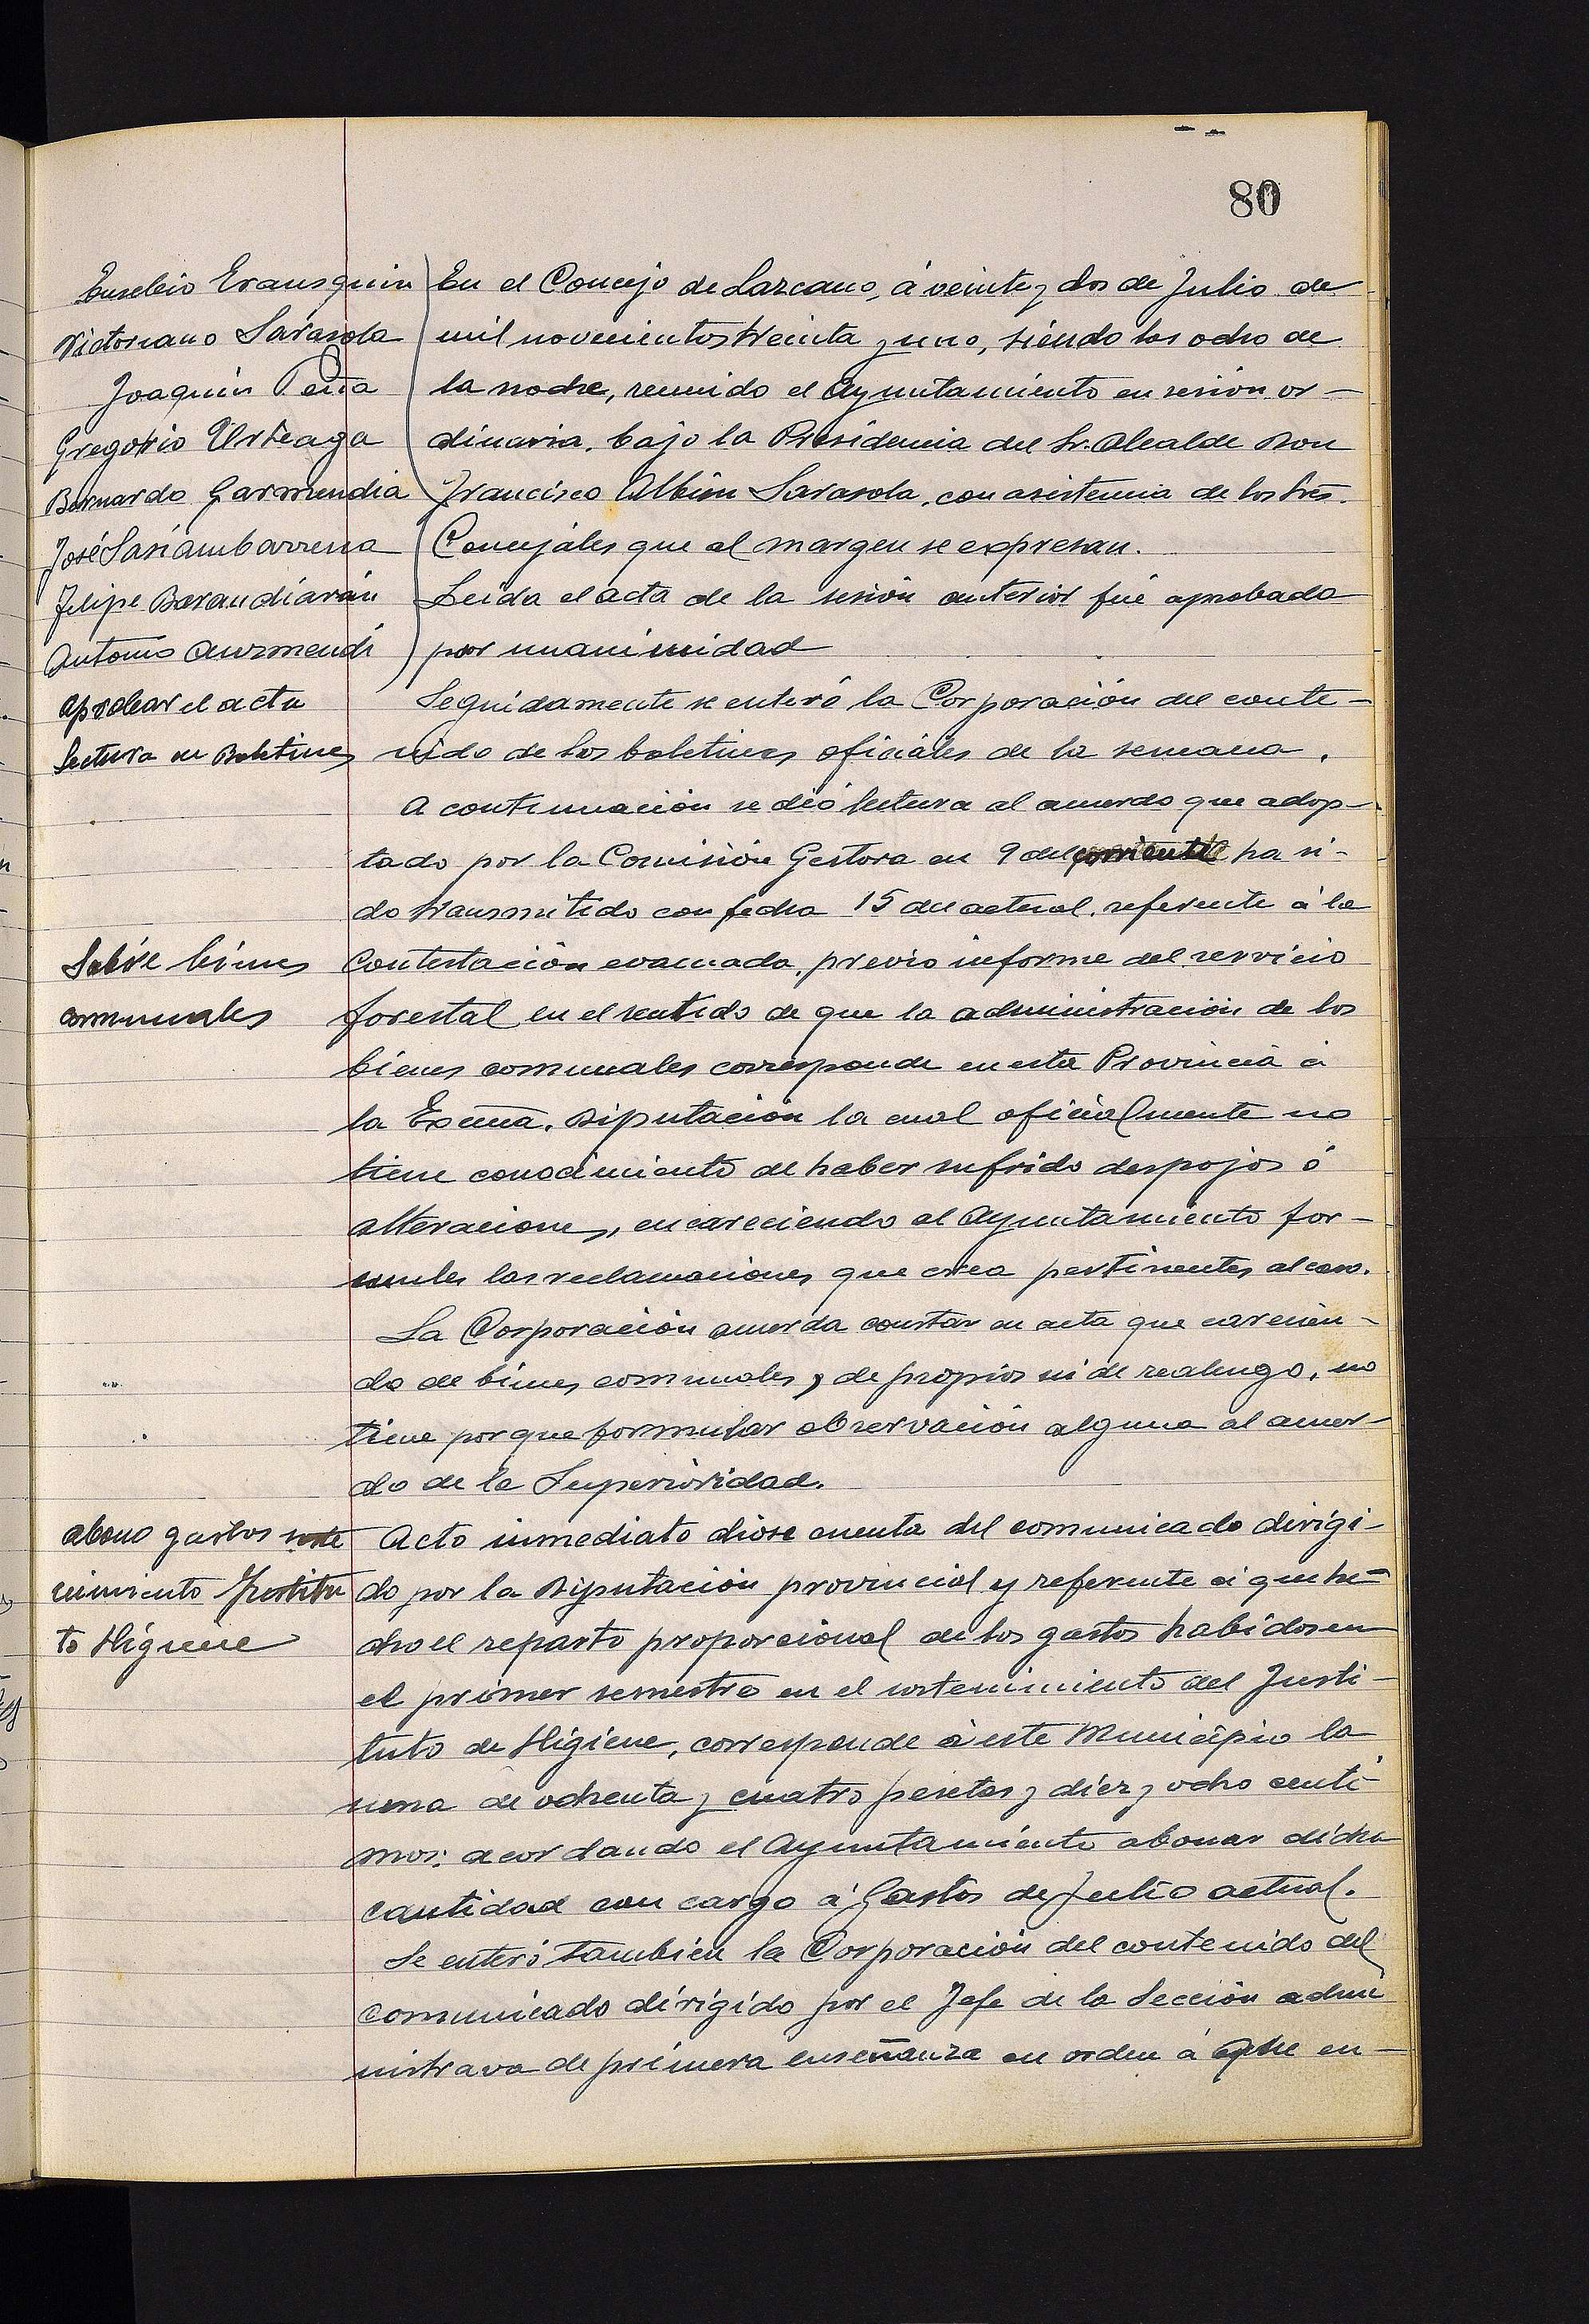 80
Eusebio Erausquin
Victoriano Sarasola
Joaquin Peña
Gregorio Urteaga
Bernardo Garmendia
José Sasiambarrena
Felipe Barandiarán
Antonio Aurmendi
En el Concejo de Lazcano, á veinte y dos de Julio de
mil novecientos treinta y uno, siendo las ocho de
la noche, reunido el Ayuntamiento en sesión or-
dinaria, bajo la Presidencia del Sr. Alcalde Don
Francisco Albisu Sarasola, con asistencia de los Sres.
Concejáles que al margen se expresan.
Aprobar el acta
Leida el acta de la sesión anterior fué aprobada
por unanimidad
Lectura de Boletines
Seguidamente se enteró la Corporación del conte-
nido de los boletines oficiáles de la semana.
A continuación se dió lectura al acuerdo que adop-
tado por la Comisión Gestora en 9 del corriente ha si-
do transmitido con fecha 15 del actual, referente á la
Sobre bienes
comunales
contestación evacuada, previo informe del servicio
forestal en el sentido de que la administración de los
bienes comunales corresponde en esta Provincia á
la Excma. Diputación la cual oficialmente no
tiene conocimiento de haber sufrido despojos ó
alteraciones, encareciendo al Ayuntamiento for-
mules las reclamaciones que crea pertinentes al caso.
La Corporación acuerda constar en acta que carecien-
do de bienes comunales, de propios ni de realengo, no
tiene porque formular observación alguna al acuer-
do de la Superioridad.
Abono gastos soste
nimiento Institu
to Higiene
Acto inmediato diose cuenta del comunicado dirigi-
do por la Diputación provincial y referente á que he-
cho el reparto proporcional de los gastos habidos en
el primer semestre en el sostenimiento del Insti-
tuto de Higiene, corresponde á este Municipio la
suma de ochenta y cuatro pesetas y diez y ocho centi-
mos: acordando el Ayuntamiento abonar dicha
cantidad con cargo á Gastos de Julio actual.
Se enteró también la Corporación del contenido del
comunicado dirigido por el Jefe de la Sección admi
nistrava de primera enseñanza en orden á que en-